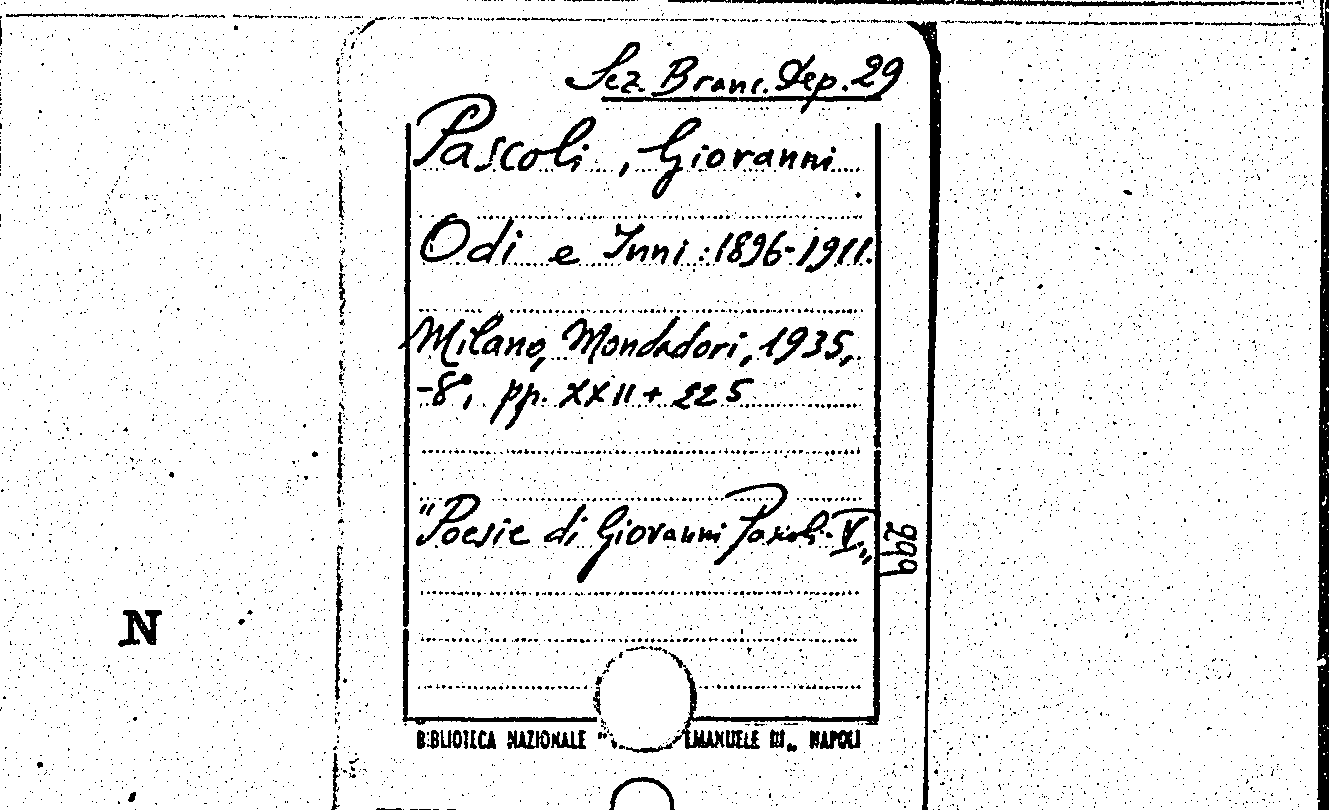 Sez. Branc. Dep. 29
Pascoli, Giovanni
Odi e Inni : 1896-1911.
Milano, Mondadori, 1935,
-8°, pp. XXII + 225
"Poesie di Giovanni Pascoli - V„
N
BIBLIOTECA NAZIONALE " EMANUELE III„ NAPOLI